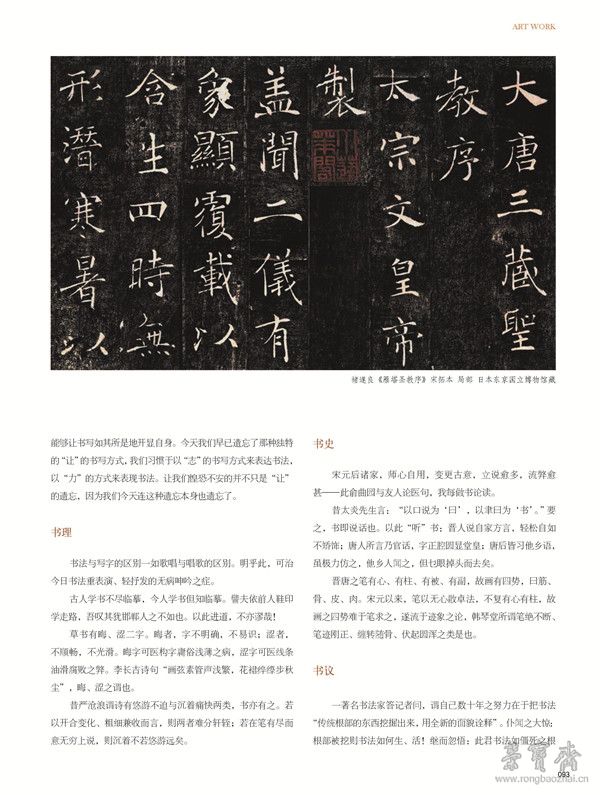 ART WORK
大唐三藏聖
教序
太宗文皇帝
製
蓋聞二儀有
象顯覆載以
含生四時無
形潛寒暑以
褚遂良《雁塔圣教序》宋拓本 局部 日本东京国立博物馆藏
能够让书写如其所是地开显自身。今天我们早已遗忘了那种独特
的“让”的书写方式，我们习惯于以“志”的书写方式来表达书法，
以“力”的方式来表现书法。让我们惶恐不安的并不只是“让”
的遗忘，因为我们今天连这种遗忘本身也遗忘了。
书理
书法与写字的区别一如歌唱与唱歌的区别。明乎此，可治
今日书法重表演、轻抒发的无病呻吟之症。
古人学书不尽临摹，今人学书但知临摹。譬夫依前人鞋印
学走路，吾叹其犹邯郸人之不如也。以此进道，不亦谬哉！
草书有晦、涩二字。晦者，字不明确，不易识；涩者，
不顺畅，不光滑。晦字可医构字庸俗浅薄之病，涩字可医线条
油滑腐败之弊。李长吉诗句“画弦素管声浅繁，花裙綷縩步秋
尘”，晦、涩之谓也。
昔严沧浪谓诗有悠游不迫与沉着痛快两类，书亦有之。若
以开合变化、粗细兼收而言，则两者难分轩轾；若在笔有尽而
意无穷上说，则沉着不若悠游远矣。
书史
宋元后诸家，师心自用，变更古意，立说愈多，流弊愈
甚——此俞曲园与友人论医句，我每做书论读。
昔太炎先生言：“以口说为‘曰’，以聿曰为‘书’。”要
之，书即说话也。以此“听”书：晋人说自家方言，轻松自如
不矫饰；唐人所言乃官话，字正腔圆显堂皇；唐后皆习他乡语，
虽极力仿之，他乡人闻之，但乜眼掉头而去矣。
晋唐之笔有心、有柱、有被、有副，故画有四势，曰筋、
骨、皮、肉。宋元以来，笔以无心散卓法，不复有心有柱，故
画之四势难于笔求之，遂流于迹象之论，韩琴堂所谓笔绝不断、
笔迹刚正、缠转随骨、伏起圆浑之类是也。
书议
一著名书法家答记者问，谓自己数十年之努力在于把书法
“传统根部的东西挖掘出来，用全新的面貌诠释”。仆闻之大惊：
根部被挖则书法如何生、活！继而忽悟：此君书法如僵死之根
荣宝斋
www.rongbaozhai.cn
093